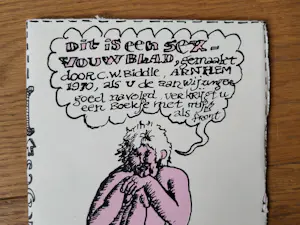 Dit is een sex-
VOUWBLAD, gemaakt
door C.W. Biddle, ARNHEM
1970, als u de aanwijzingen
goed navolgd, verkrijgt u
een boekje met mijn
als front